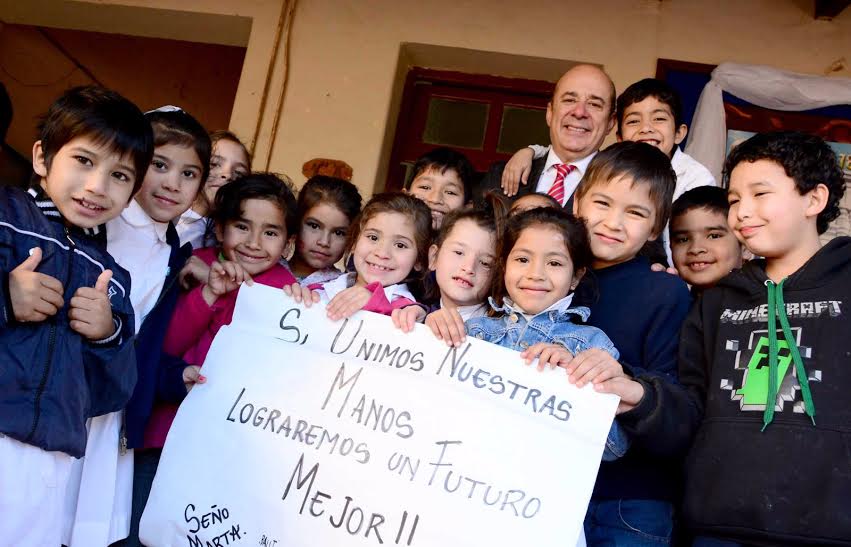 Si Unimos Nuestras
Manos
Lograremos un Futuro
Mejor!!
Seño
Marta.
MINECRAFT